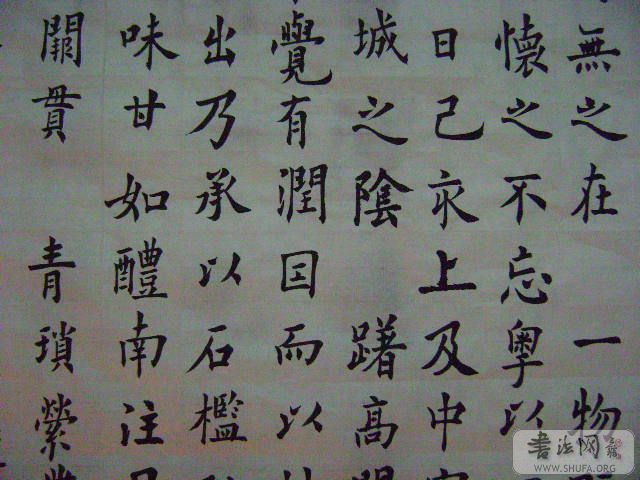 無之在 一物
懷之不忘粵以
日己亥上及中
城之陰 躇高
覺有潤囙而以
出乃承以石檻
味甘如醴南注
闕貫 青瑣縈
書法网
WWW.SHUFA.ORG